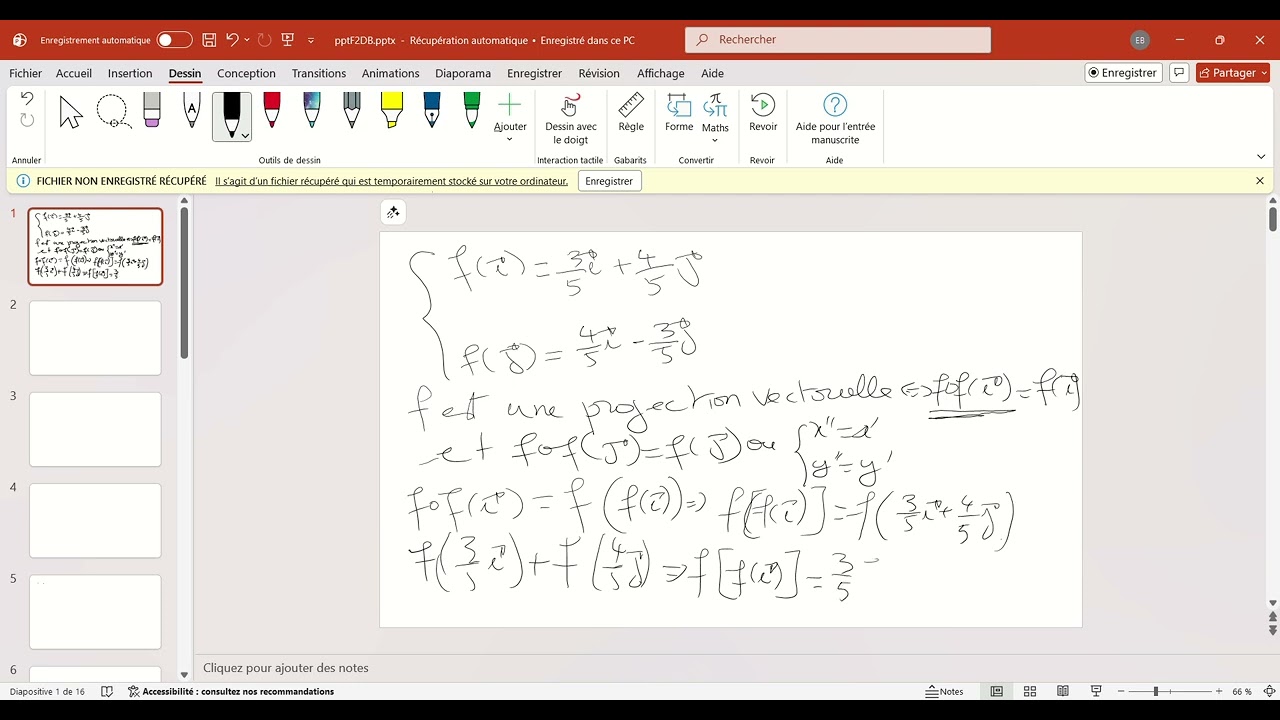 Enregistrement automatique
pptF2DB.pptx - Récupération automatique • Enregistré dans ce PC
Rechercher
EB
Fichier Accueil Insertion Dessin Conception Transitions Animations Diaporama Enregistrer Révision Affichage Aide
Enregistrer Partager
Ajouter
Dessin avec le doigt
Règle
Forme
Maths
Revoir
Aide pour l'entrée manuscrite
Annuler
Outils de dessin
Interaction tactile
Gabarits
Convertir
Revoir
Aide
FICHIER NON ENREGISTRÉ RÉCUPÉRÉ Il s'agit d'un fichier récupéré qui est temporairement stocké sur votre ordinateur. Enregistrer
1
2
3
4
5
6
f(i⃗) = 3/5 i⃗ + 4/5 j⃗
f(j⃗) = 4/5 i⃗ - 3/5 j⃗
f est une projection vectorielle ⇔ fof(i⃗) = f(i⃗)
et fof(j⃗) = f(j⃗) ou { x'' = x'
y'' = y'
fof(i⃗) = f(f(i⃗)) ⇒ f[f(i⃗)] = f(3/5 i⃗ + 4/5 j⃗)
f(3/5 i⃗) + f(4/5 j⃗) ⇒ f[f(i⃗)] = 3/5
Cliquez pour ajouter des notes
Diapositive 1 de 16 Accessibilité : consultez nos recommandations Notes 66 %